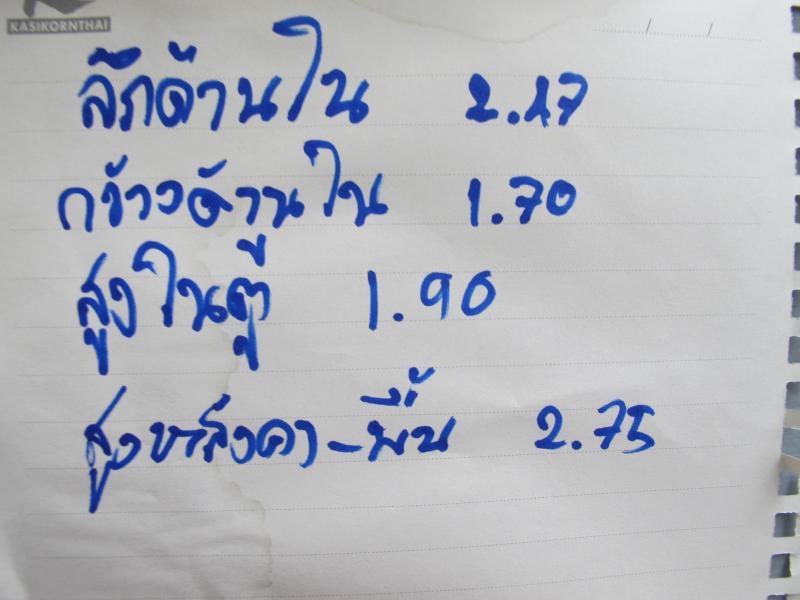 KASIKORNTHAI
ลึกด้านใน 2.47
กว้างด้านใน 1.70
สูงในตู้ 1.90
สูงหลังคา-พื้น 2.75